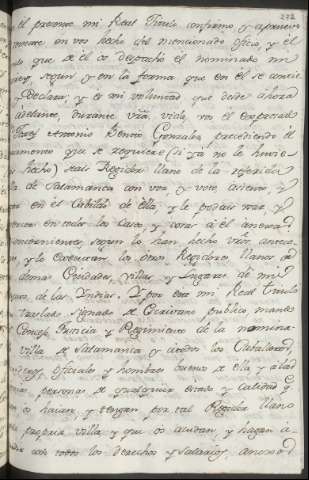 272
el presente mi Real Titulo confirmo y apruevo
en vos hecho del mencionado oficio, y él
que de él os despachó el nominado mi
Virrey segun y en la forma que en él se contie
y declara, y es mi voluntad que desde ahora
adelante, durante vrã vida, vos el expresado
Antonio Benito Gonzalez precediendo el
juramento que se requiere (si ya no le huvie
hecho) seais Regidor llano de la referida
Villa de Salamanca con voz, y voto, asiento, y
en el Cabildo de ella y le podais usar y
exercer en todos los casos, y cosas à él anexas
concernientes, segun lo han hecho vrõs antece
y lo executan los otros Regidores llanos de
demas Ciudades, Villas y Lugares de mis
Reynos de las Indias. Y por este mi Real titulo
traslado signado de Escrivano publico mando
Concejo, Justicia y Regimiento de la nomina
villa de Salamanca y à todos los Cavalleros,
Escuderos, oficiales y hombres buenos de ella y à las
personas de qualquier estado y calidad q
os hayan y tengan por tal Regidor llano
propria villa y que os acudan, y hagan a
con todos los derechos y salarios, anexos